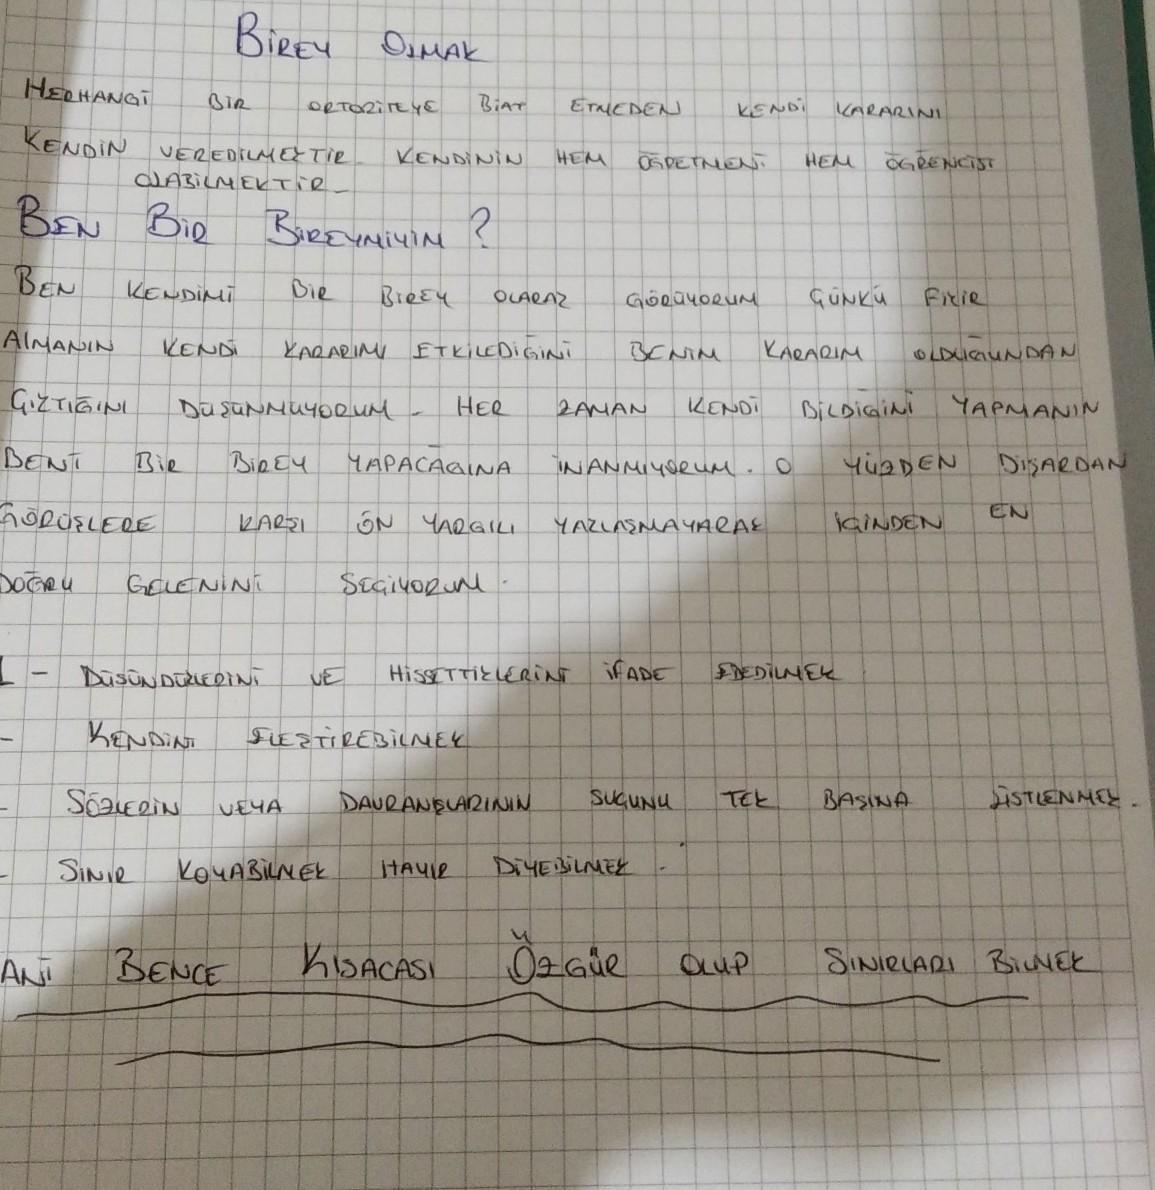 BİREY OLMAK
HERHANGİ BİR ORTORİTEYE BİAT ETMEDEN KENDİ KARARINI
KENDİN VEREBİLMEKTİR KENDİNİN HEM ÖĞRETMENİ HEM ÖĞRENCİSİ
OLABİLMEKTİR
BEN BİR BİREYMİYİM ?
BEN KENDİMİ BİR BİREY OLARAK GÖRÜYORUM ÇÜNKÜ FİKİR
ALMANIN KENDİ KARARIMI ETKİLEDİĞİNİ BENİM KARARIM OLDUĞUNDAN
ÇIKTIĞINI DÜŞÜNMÜYORUM - HER ZAMAN KENDİ BİLDİĞİNİ YAPMANIN
BENİ BİR BİREY YAPACAĞINA İNANMIYORUM. O YÜZDEN DIŞARDAN
GÖRÜŞLERE KARŞI ÖN YARGILI YAKLAŞMAYARAK İÇİNDEN EN
DOĞRU GELENİNİ SEÇİYORUM.
- DÜŞÜNDÜKLERİNİ VE HİSSETTİKLERİNİ İFADE EDEBİLMEK
- KENDİNİ ELEŞTİREBİLMEK
- SÖZLERİN VEYA DAVRANIŞLARININ SUÇUNU TEK BAŞINA ÜSTLENMEK.
- SINIR KOYABİLMEK HAYIR DİYEBİLMEK.
YANİ BENCE KISACASI ÖZGÜR OLUP SINIRLARI BİLMEK